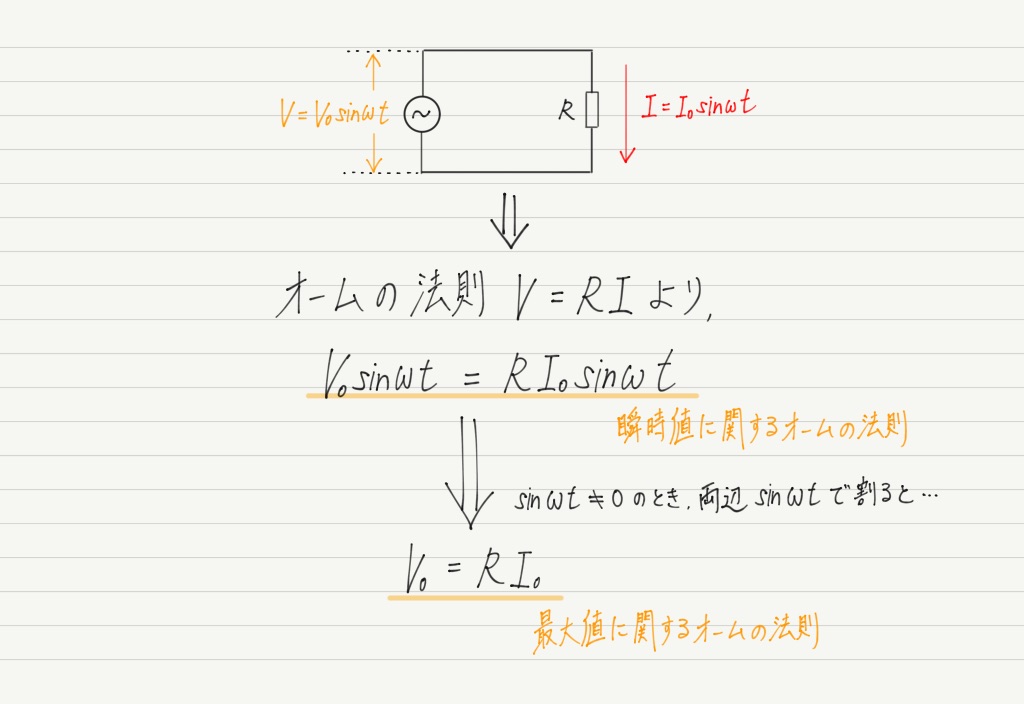 V=V₀sinωt
R
I=I₀sinωt
オームの法則 V=RIより,
V₀sinωt = RI₀sinωt
瞬時値に関するオームの法則
sinωt≠0のとき,両辺sinωtで割ると…
V₀ = RI₀
最大値に関するオームの法則